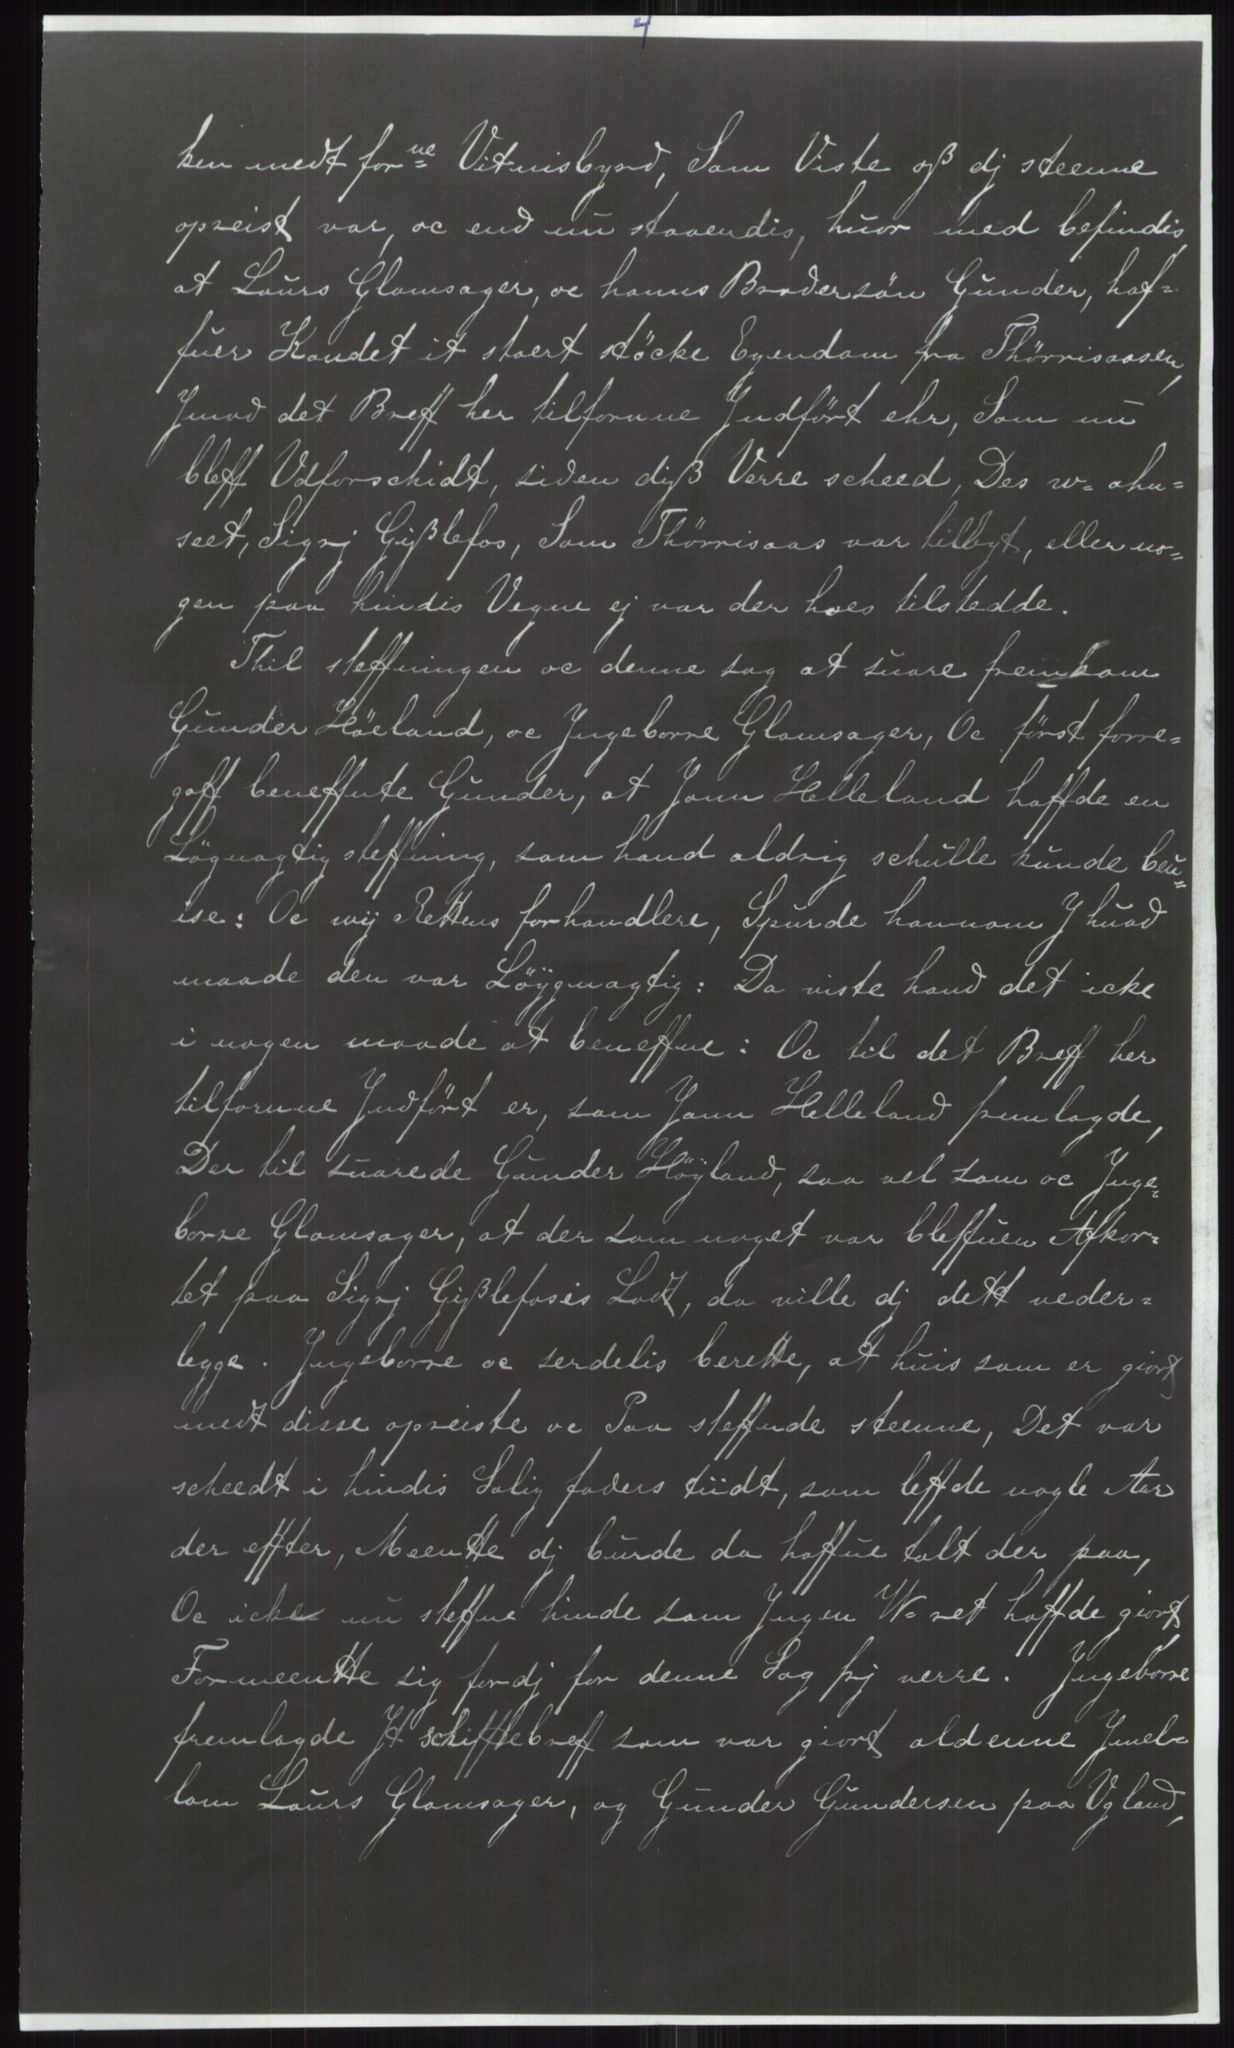 4
ken medt for ne Vitnisbyrd, Som Viste oß dj steenne
opreist var, oc end nu staaendis, huor med befindis,
at Laurs Glamsager, oc hanns Brodersön Gunder, haf-
fuer Kandet it stoert stöcke Egendom fra Thörrisaasen,
Jmod det Breff her tilfornne Jndfört ehr, Som nu
bleff Vdforschidt, siden diß Verre scheed, Des w= ahn=
seet, Sigrj Gißlefos, Som Thörrisaas var tillagt, eller no=
gen paa hindis Vegne ej var der hoes tilstedde.
Thil steffningen oc denne sag at suare fremkom
Gunder Höeland, oc Jngeborre Glamsager, Oc först forre=
gaff beneffnte Gunder, at Jonn Helleland haffde en
Lögnagtig steffning, som hand aldrig schulle kunde beu=
ise: Oc wij Rettens forhandlere, Spurde hannom J huad
maade den var Löÿgnagtig: Da viste hand det icke
i nogen maade at beneffne: Oc til det Breff her
tilfornne Jndfört er, som Jonn Helleland fremlagde,
Der til suarede Gunder Höÿland, saa vel som oc Jnge=
borre Glamsager, at der som noget var bleffuen Afkor=
tet paa Sigrj Gißlefosis Lodt, da ville dj dett veder=
legge. Jngeborre oc serdelis berette, at huis som er giort
medt disse opreiste oc Paa steffnde steenne, Det var
scheedt i hindis Salig faders tiidt, som leffde nogle Aar
der effter, Meentte dj burde da haffue talt der paa,
Oc icke nu steffne hinde som Jngen W= ret haffde giort,
Formeentte sig fordj for denne Sag frj verre. Jngeborre
fremlagde Jt schifftebreff som var giort aldenne Jmel=
lom Laurs Glamsager, og Gunder Gundersen paa Vgland,